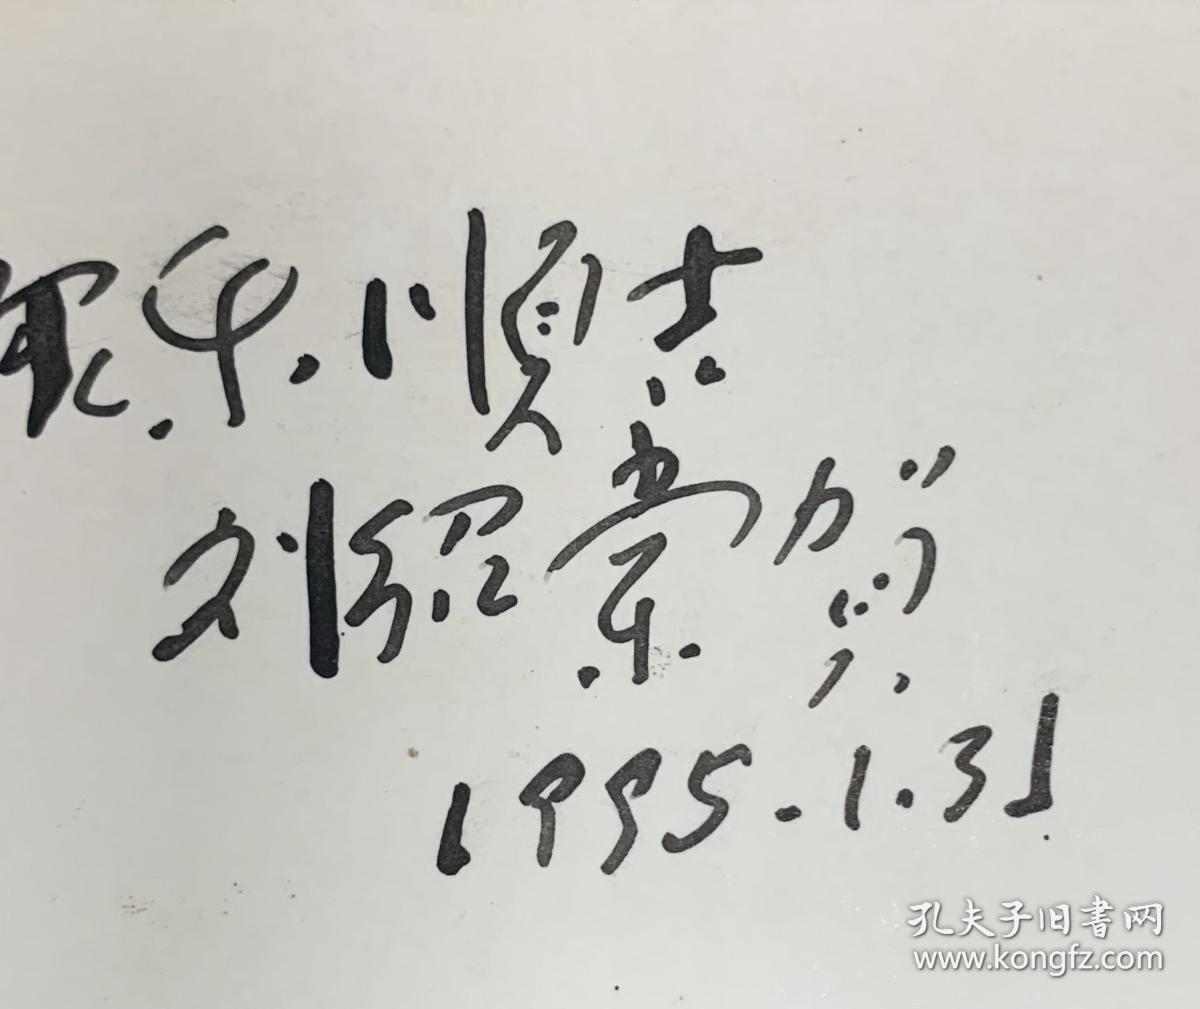 順吉
刘绍棠贺
1995.1.31
孔夫子旧書网
www.kongfz.com